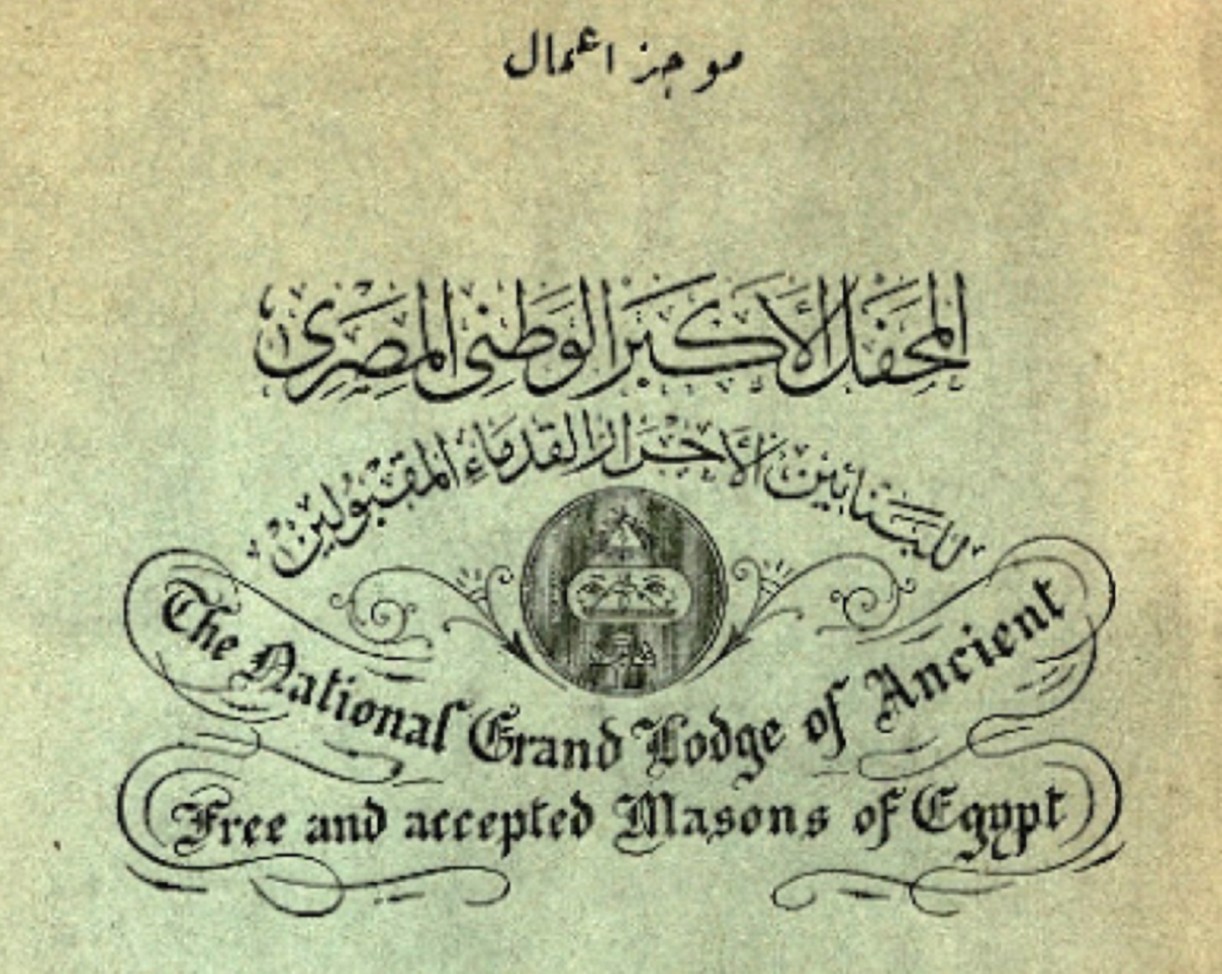 موجز اعمال
المَحفَل الأكبَر الوَطنى المِصرى
للبَنايين الأحرَار القدمَاء المقبُولين
The National Grand Lodge of Ancient
Free and accepted Masons of Egypt